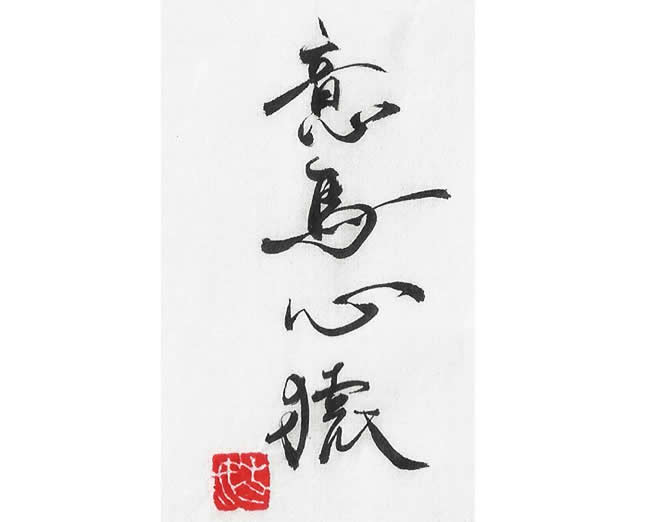 意馬心猿